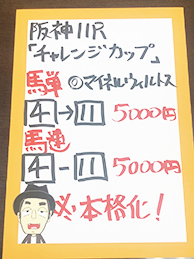 阪神11R
「チャレンジカップ」
馬単 ◎マイネルウィルトス
4→11 5000円
馬連
4-11 5000円
※本格化!